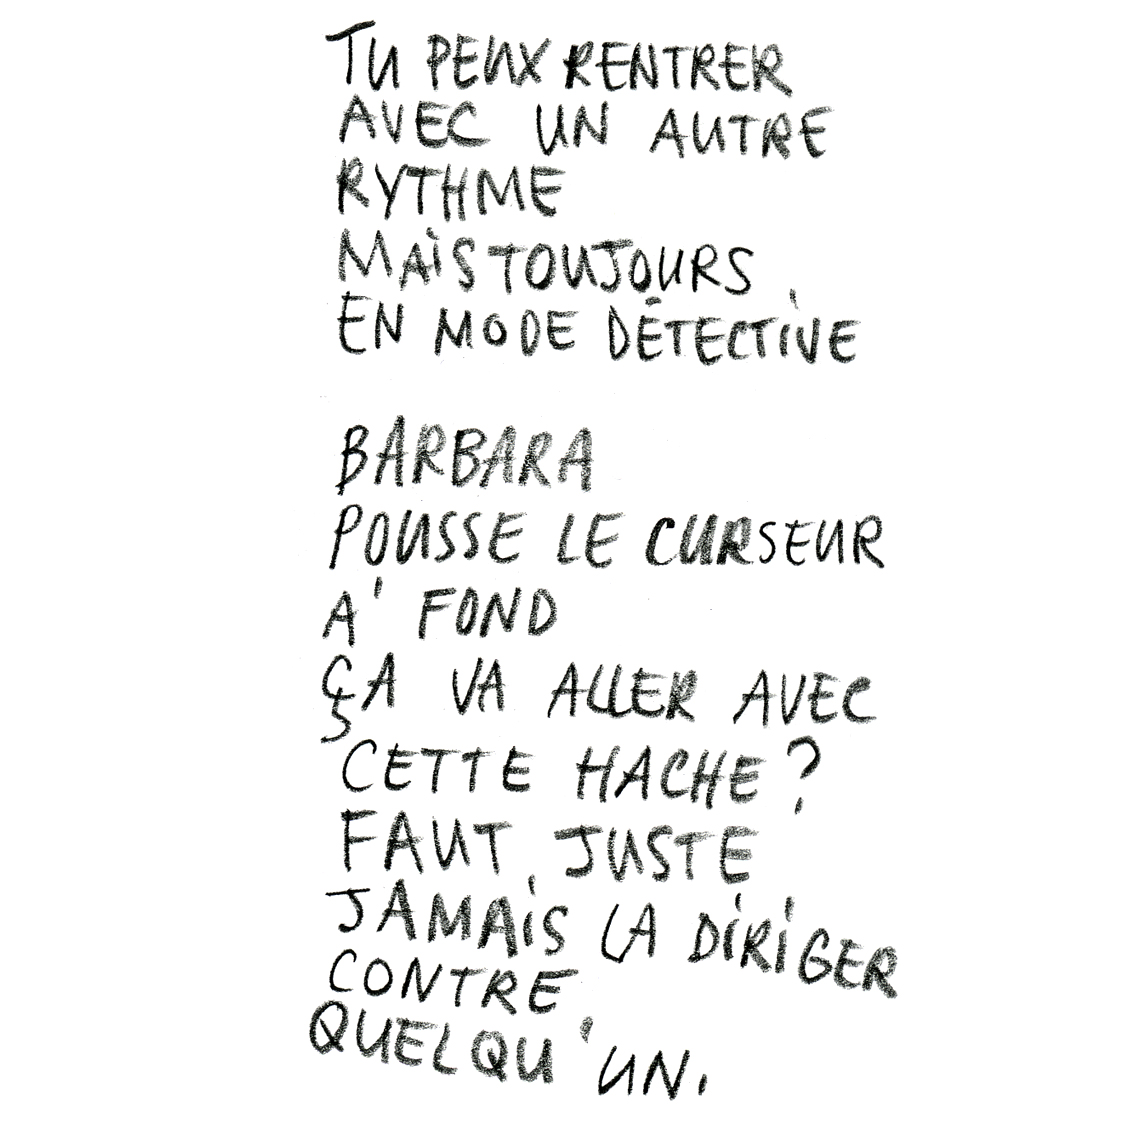 TU PEUX RENTRER
AVEC UN AUTRE
RYTHME
MAiS TOUJOURS
EN MODE DÉTECTiVE
BARBARA
POUSSE LE CURSEUR
A' FOND
ÇA VA ALLER AVEC
CETTE HACHE ?
FAUT JUSTE
JAMAiS LA DiRiGER
CONTRE
QUELQU'UN.